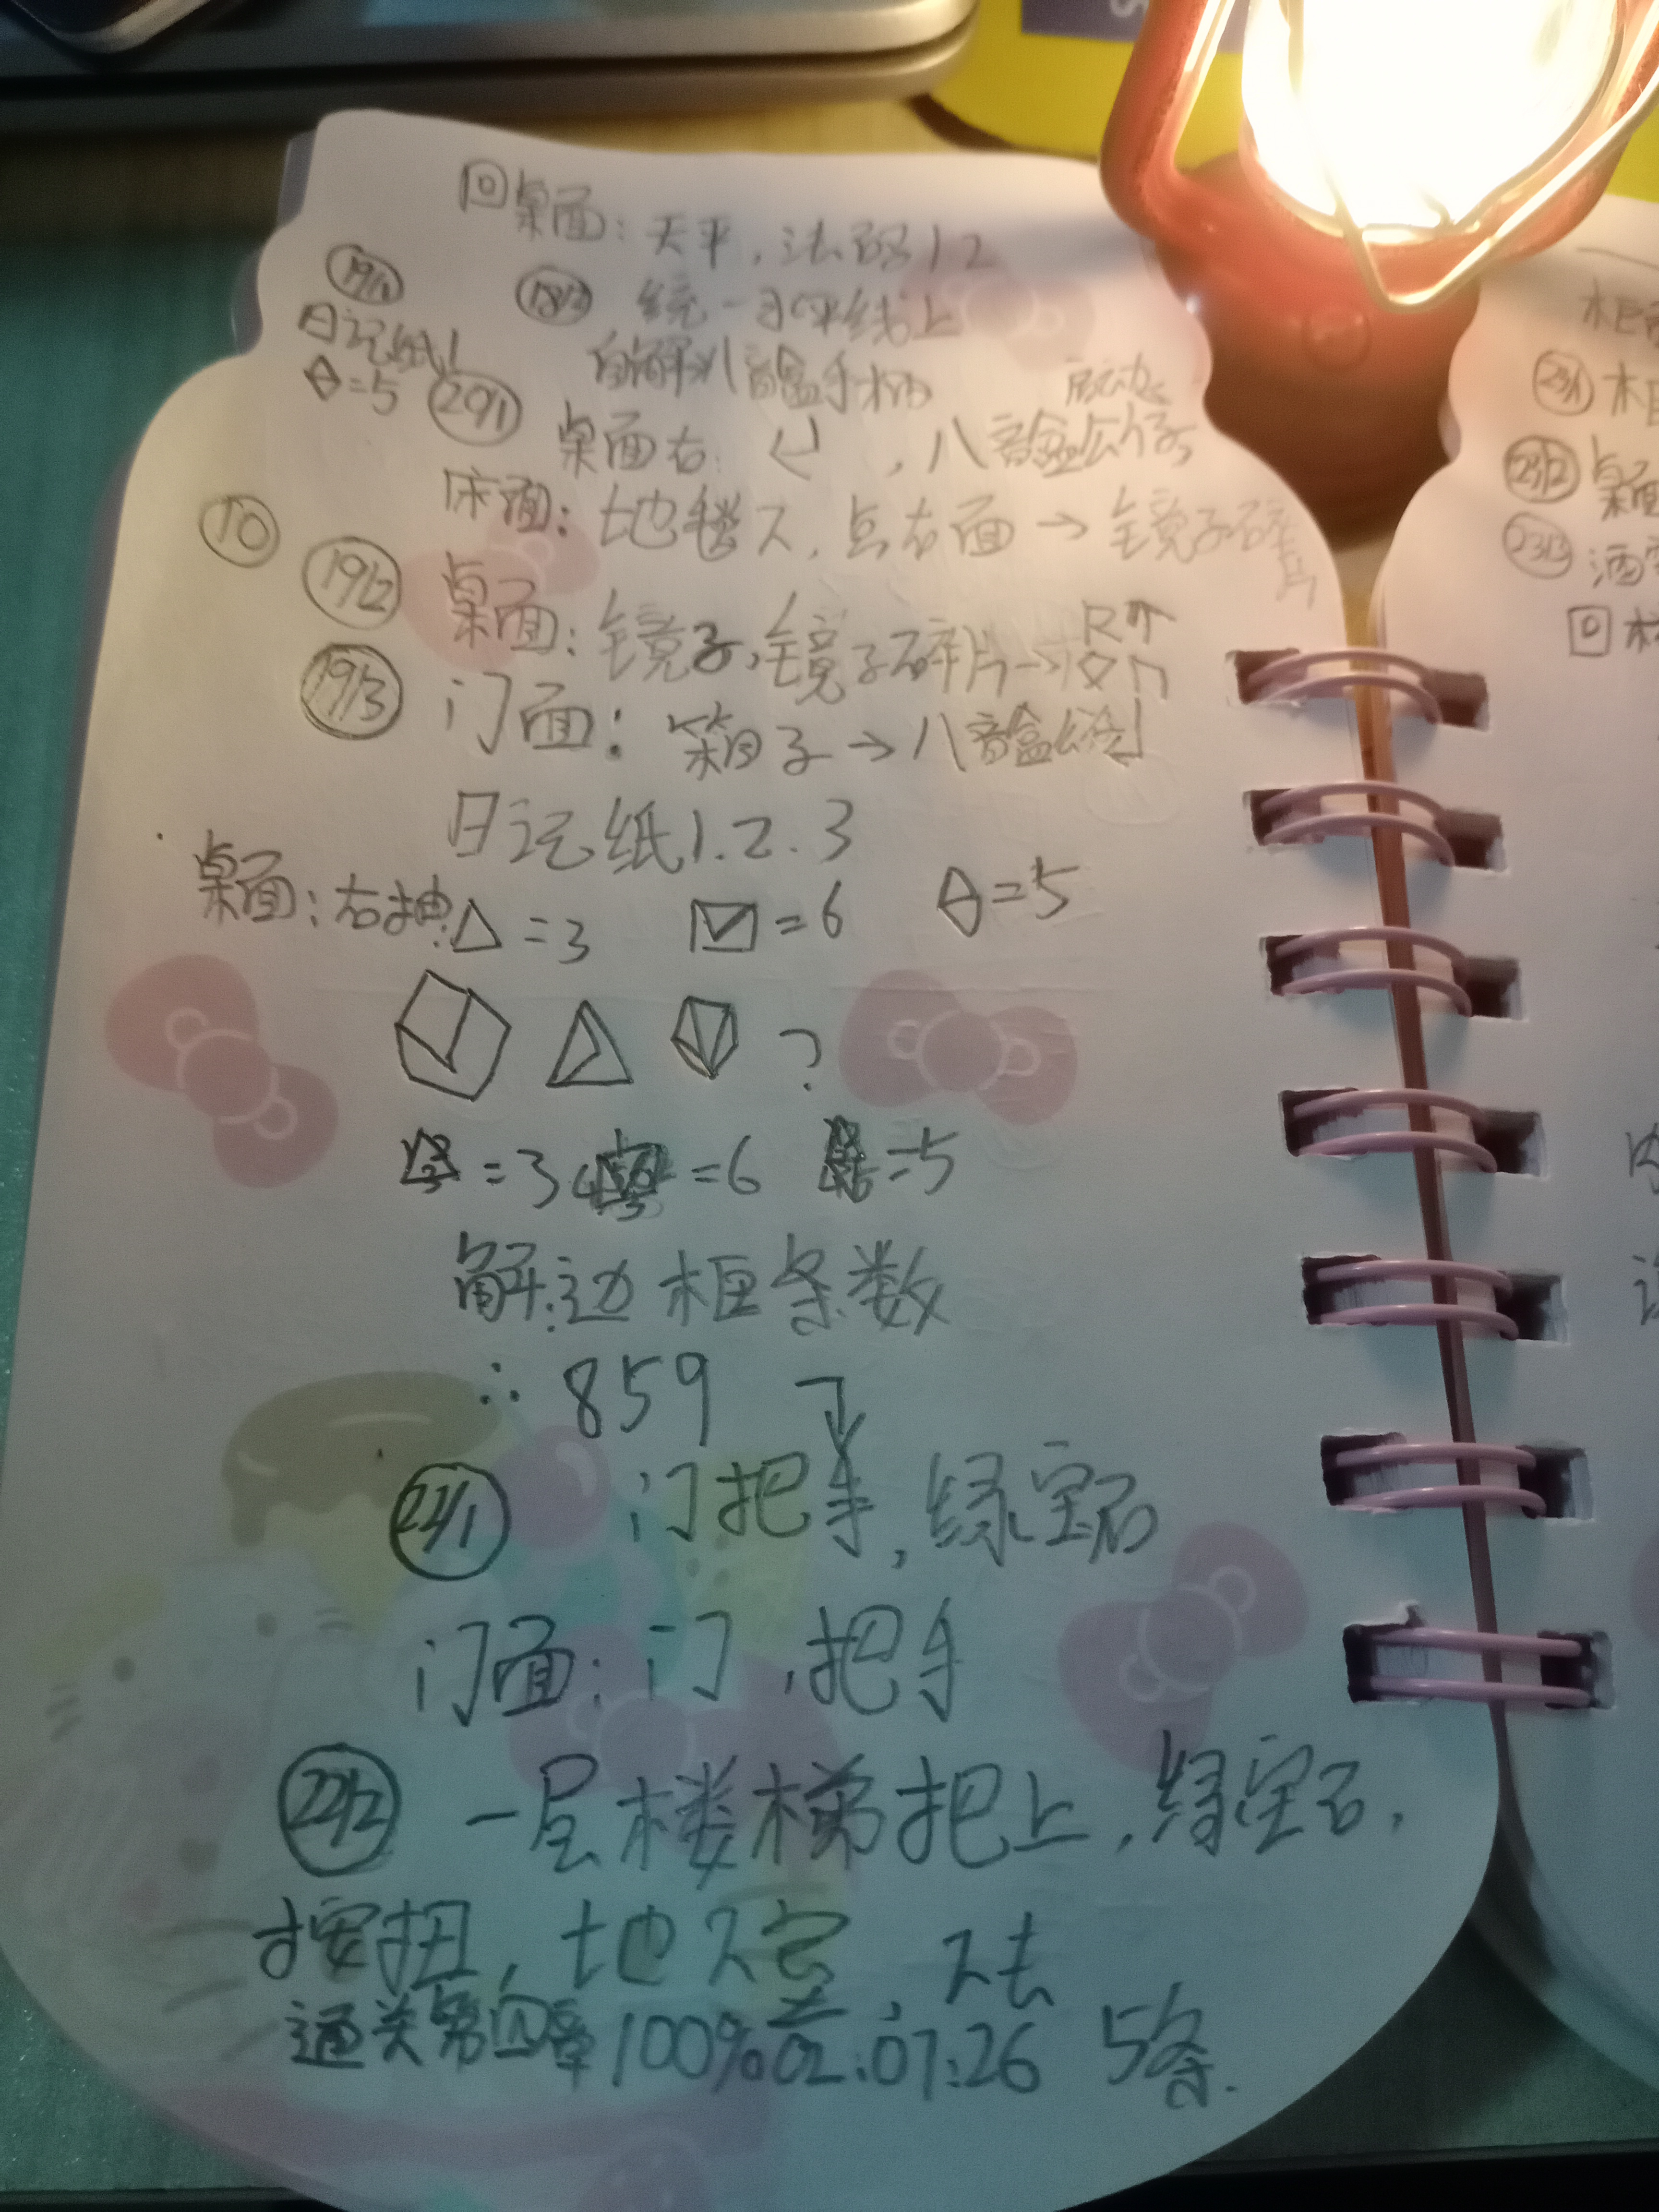 回桌面：天平，法码12
19/1 18/2 统一水平线上
日记纸1 自解八音盒手柄
=5 20/1 桌面右：，八音盒公仔，启动
床面：地毯下，点右面→镜子碎片
10
19/2 桌面：镜子，镜子碎片→
19/3 门面：箱子→八音盒
日记纸1.2.3
桌面：右抽：△=3 =6 =5
?
=3 =6 =5
解：边框条数
∴859 下
22/1 门把手，绿宝石
门面：门，把手
22/2 一层楼梯把上，绿宝石，
按扭，地下室，下去
通关第四章100% 02:07:26 5条.
相
23/1 相
23/2 桌面
23/3 酒